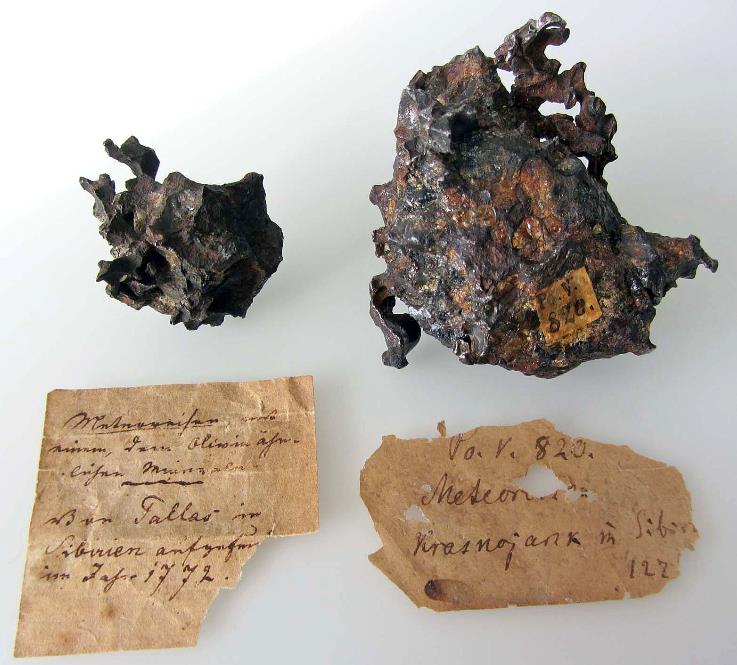 Po. V.
820.
Meteoreisen mit
einem, dem Olivin ähn-
lichen Minerale
Von Pallas in
Sibirien aufgefun
im Jahr 1772.
Po. V. 820.
Meteor
Krasnojarsk in Sibir
122